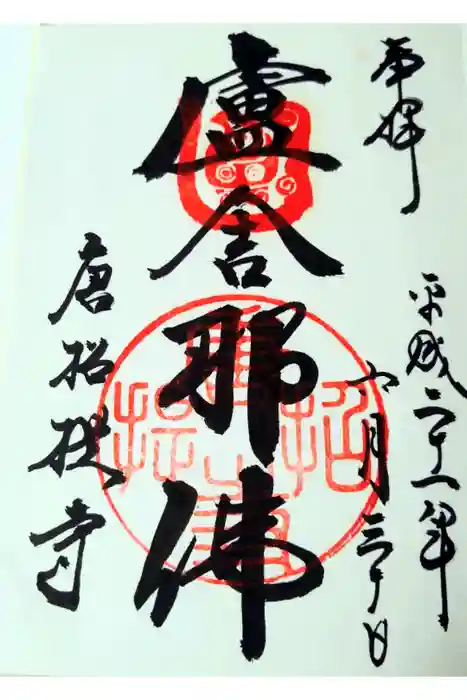 奉拝
平成二十年
月三十日
盧舎那佛
唐招提寺